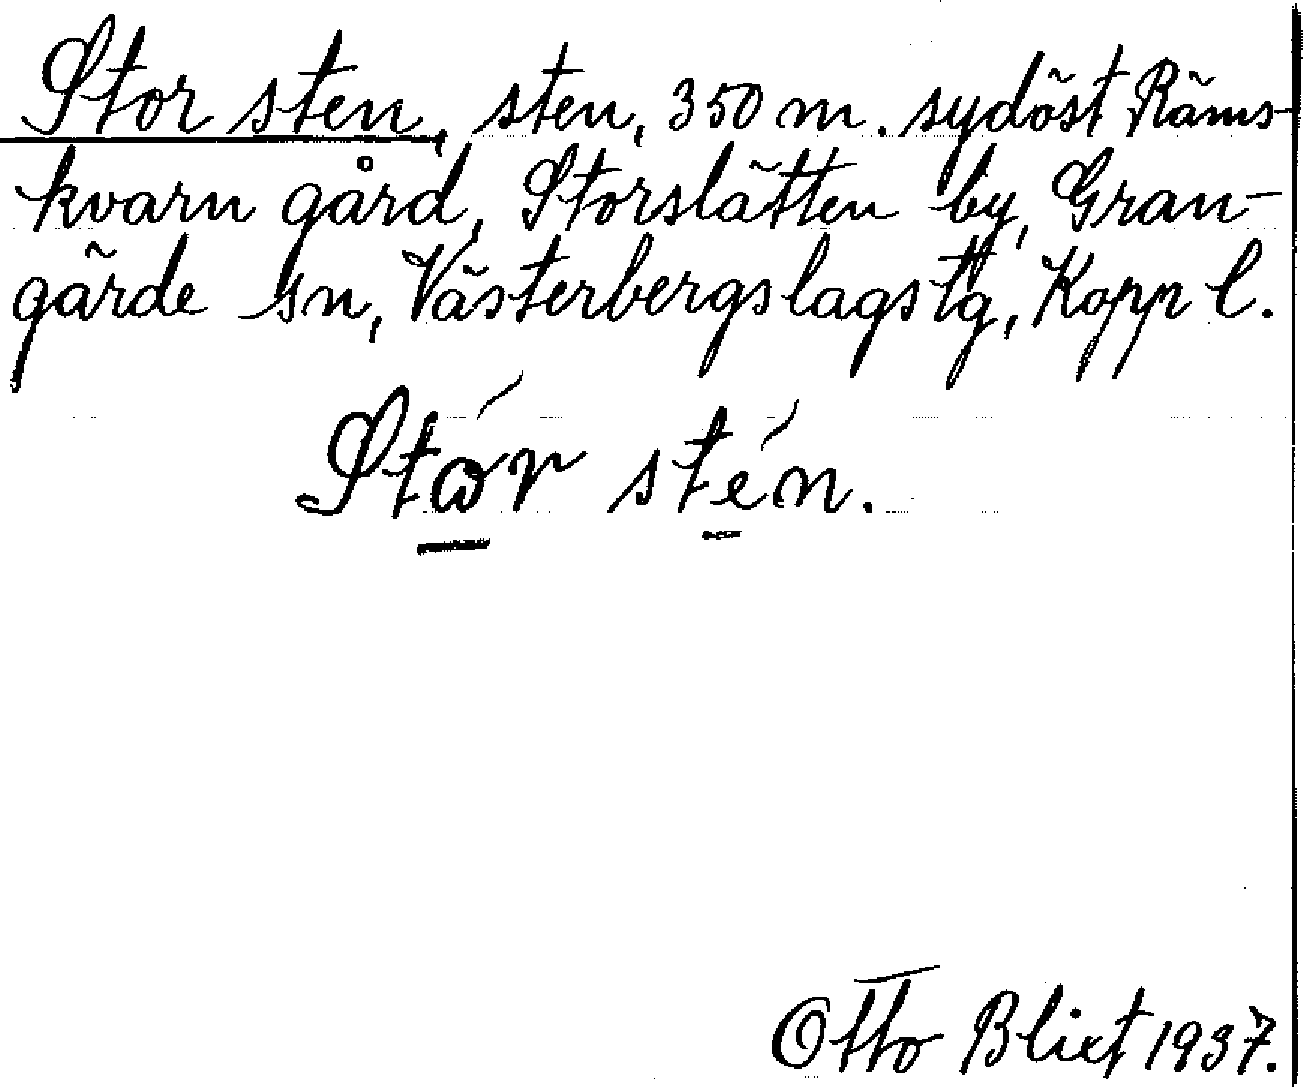 Stor sten, sten, 350 m. sydöst Räms-
kvarn gård, Storslätten by, Gran-
gärde sn, Västerbergslags tg, Kopp l.
Stω´r sté´n.
Otto Blixt 1937.